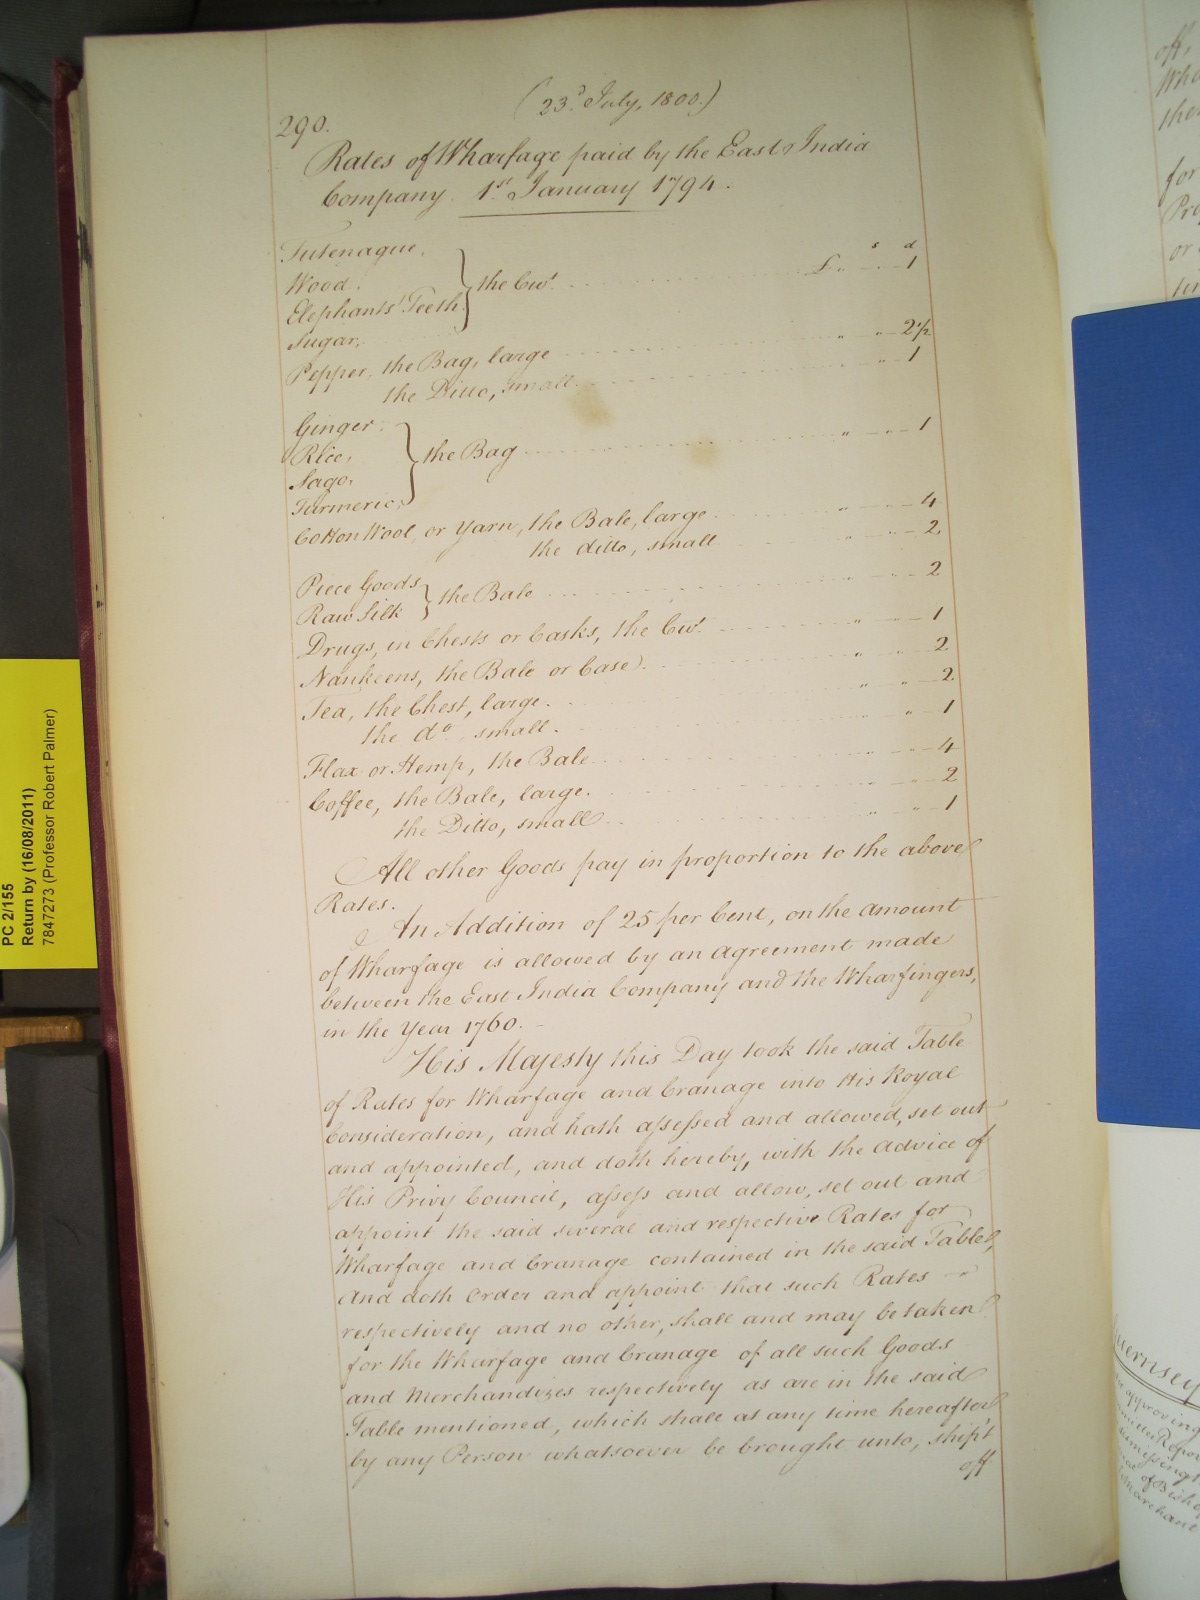 (23.d July, 1800.)
290.
Rates of Wharfage paid by the East India
Company 1.st January 1794.
s d
Tutenague.
Wood.
Elephants' Teeth
Sugar,
} the Cwt. £ " - " - 1
Pepper, the Bag, large " " - 2½
the Ditto, small " - 1
Ginger.
Rice,
Sago,
Turmeric,
} the Bag " - " - 1
Cotton Wool, or Yarn, the Bale, large " " - 4
the ditto, small " " - 2
Piece Goods
Raw Silk
} the Bale " " - 2
Drugs, in Chests or Casks, the Cwt. " " - 1
Nankeens, the Bale or Case. " " - 2
Tea, the Chest, large. " " - 2
the do. small. " " - 1
Flax or Hemp, the Bale " " - 4
Coffee, the Bale, large. " " - 2
the Ditto, small " " - 1
All other Goods pay in proportion to the above
Rates.
An Addition of 25 per Cent, on the amount
of Wharfage is allowed by an agreement made
between the East India Company and the Wharfingers,
in the Year 1760. -
His Majesty this Day took the said Table
of Rates for Wharfage and Cranage into His Royal
Consideration, and hath assessed and allowed, set out
and appointed, and doth hereby, with the advice of
His Privy Council, assess and allow, set out and
appoint the said several and respective Rates for
Wharfage and Cranage contained in the said Table,
And doth Order and appoint that such Rates
respectively and no other, shall and may be taken
for the Wharfage and Cranage of all such Goods
and Merchandizes respectively as are in the said
Table mentioned, which shall at any time hereafter
by any Person whatsoever be brought unto, ship't
off
PC 2/155
Return by (16/08/2011)
7847273 (Professor Robert Palmer)
off,
for
or
Guernsey
approving